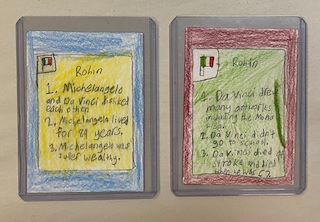 Robin
1. Michelangelo
and Da Vinci disliked
each other.
2. Michelangelo lived
for 89 years.
3. Michelangelo was
super wealthy.
Robin
1. Da Vinci drew
many artworks
including the Mona
2. Da Vinci didn't
go to school.
3. Da Vinci died of
stroke and died